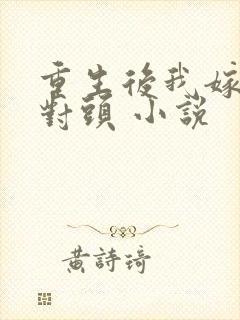 重生後我嫁
對頭 小說
黃詩琦